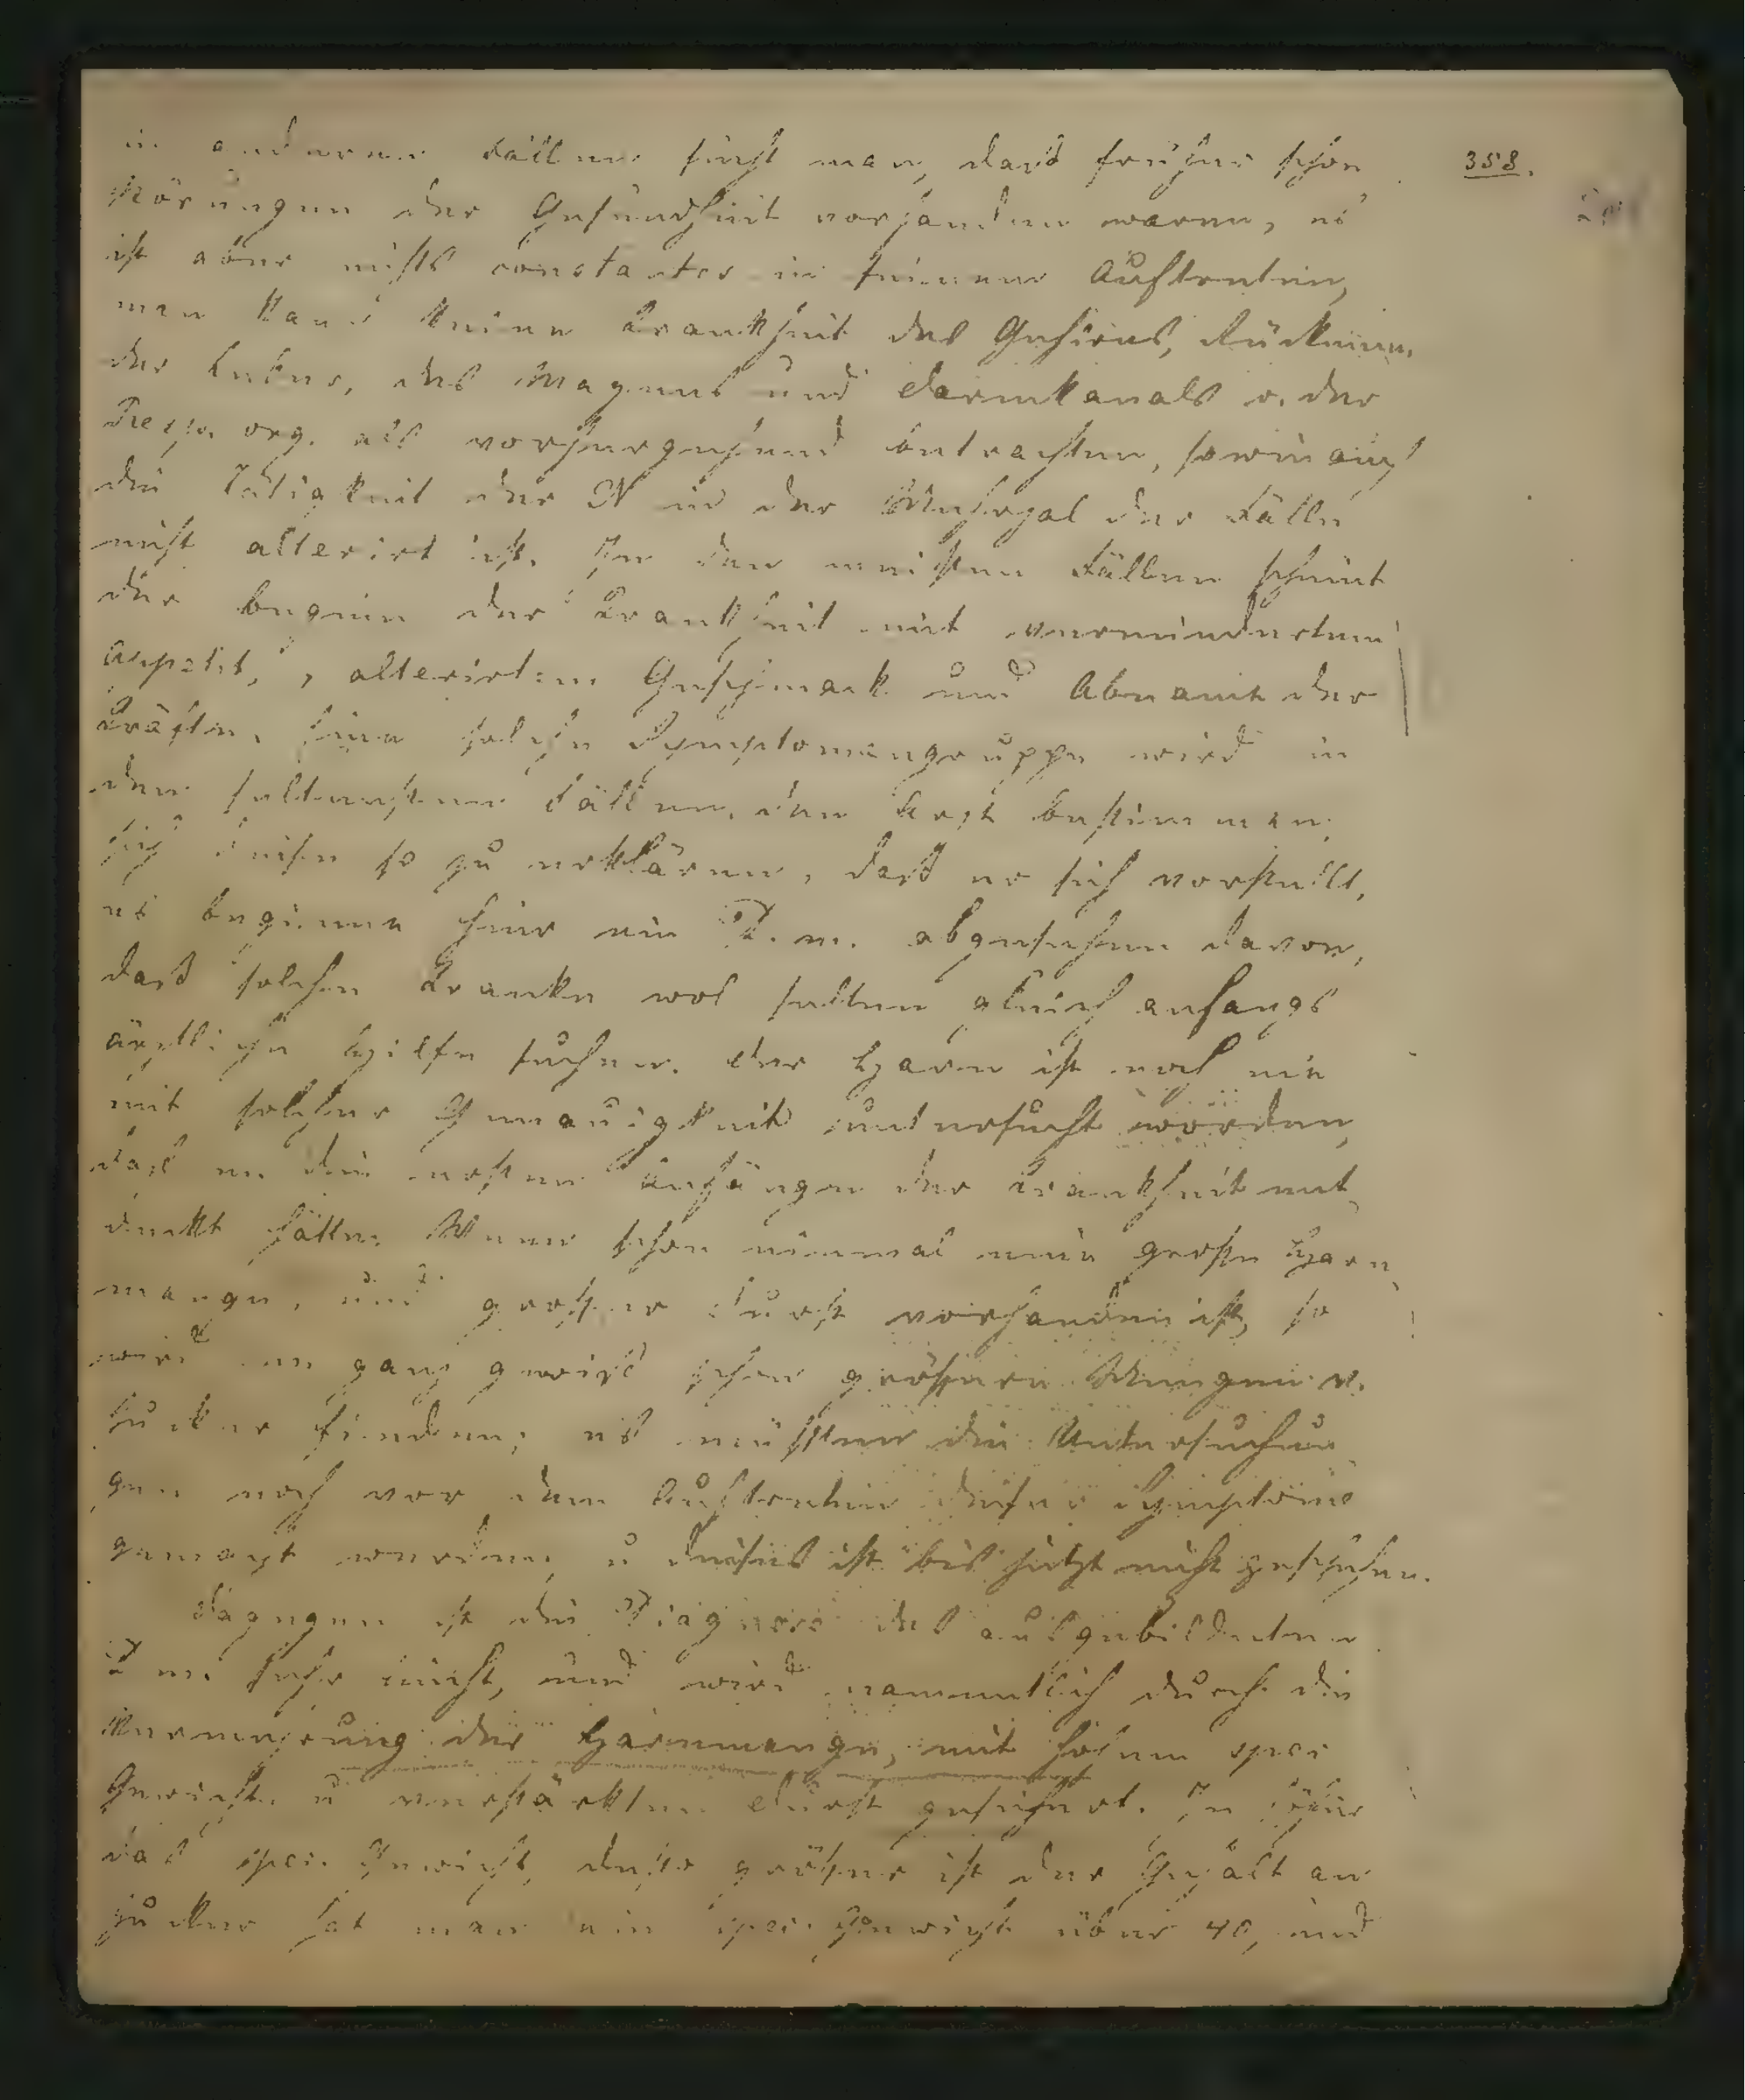 in anderen Fällen sieht man, daß früher schon
358.
Störungen der Gesundheit vorhanden waren, es
ist aber nichts constantes in seinem Auftreten,
man kann keine Krankheit des Gehirns, Rückenm.
der Leber, des Magens und Darmkanals o. der
Resp. org. als vorhergehend betrachten, sowie auch
die Tätigkeit der N in der Mehrzal der Fälle
nicht alterirt ist. In den meisten Fällen scheint
der Beginn der Krankheit mit vermindertem
Appetit, alterirtem Geschmack und Abnamе der
Kräfte. Eine solche Symptomengruppe wird in
den seltensten Fällen den Arzt bestimmen,
sich diese so zu erklären, daß er sich vorstellt,
es beginne hier ein D. m. abgesehen davon,
daß solche Kranke wol selten gleich anfangs
ärztliche Hilfe suchen. Der Harn ist noch nie
mit solcher Genauigkeit untersucht worden,
daß m. die ersten Anfänge der Krankheit ent-
deckt hätte. Wenn schon einmal eine große Harn
menge, und großer Durst vorhanden ist, so
wird m. ganz gewiß schon größere Mengen v.
Zucker finden, es müßten die Untersuchun
gen noch vor dem Auftreten dieser Symptome
gemacht werden, u dieses ist bis jetzt nicht geschehen.
Dagegen ist die Diagnose des ausgebildeten
D m. sehr leicht, und wird namentlich durch die
Vermehrung der Harnmenge, mit hohem spec
Gewicht u verstärktem Durst gesichert. Je höher
das spec. Gewicht, desto größer ist der Gehalt an
Zucker hat man ein spec. Gewicht über 40, und